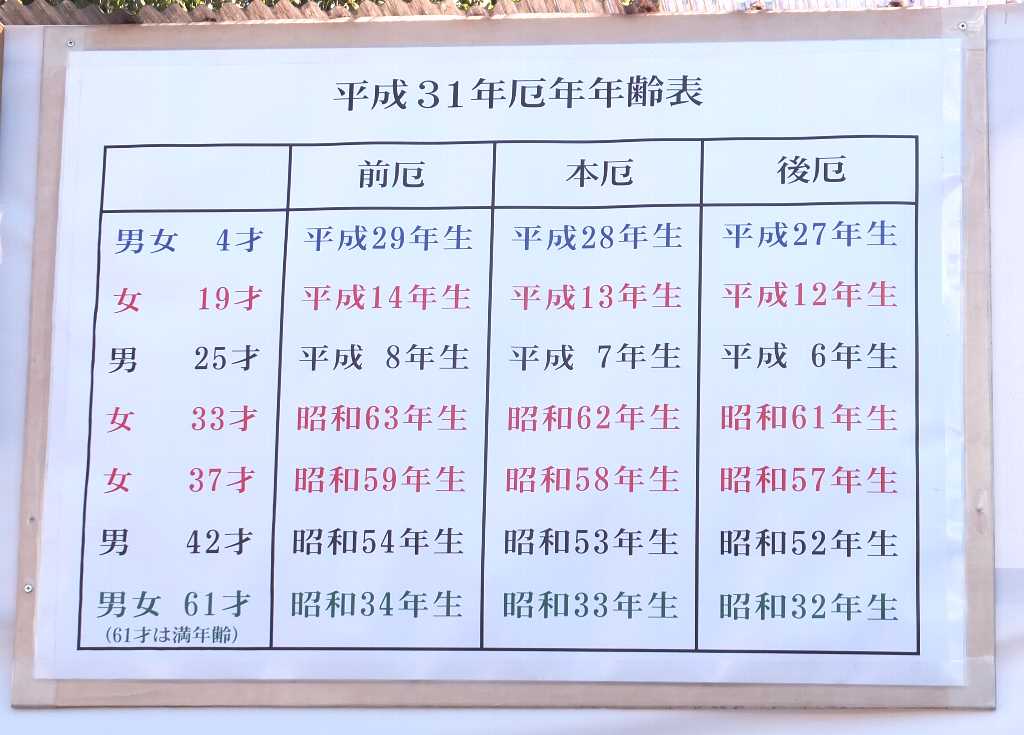 平成31年厄年年齢表
前厄 本厄 後厄
男女 4才 平成29年生 平成28年生 平成27年生
女 19才 平成14年生 平成13年生 平成12年生
男 25才 平成 8年生 平成 7年生 平成 6年生
女 33才 昭和63年生 昭和62年生 昭和61年生
女 37才 昭和59年生 昭和58年生 昭和57年生
男 42才 昭和54年生 昭和53年生 昭和52年生
男女 61才 昭和34年生 昭和33年生 昭和32年生
(61才は満年齢)